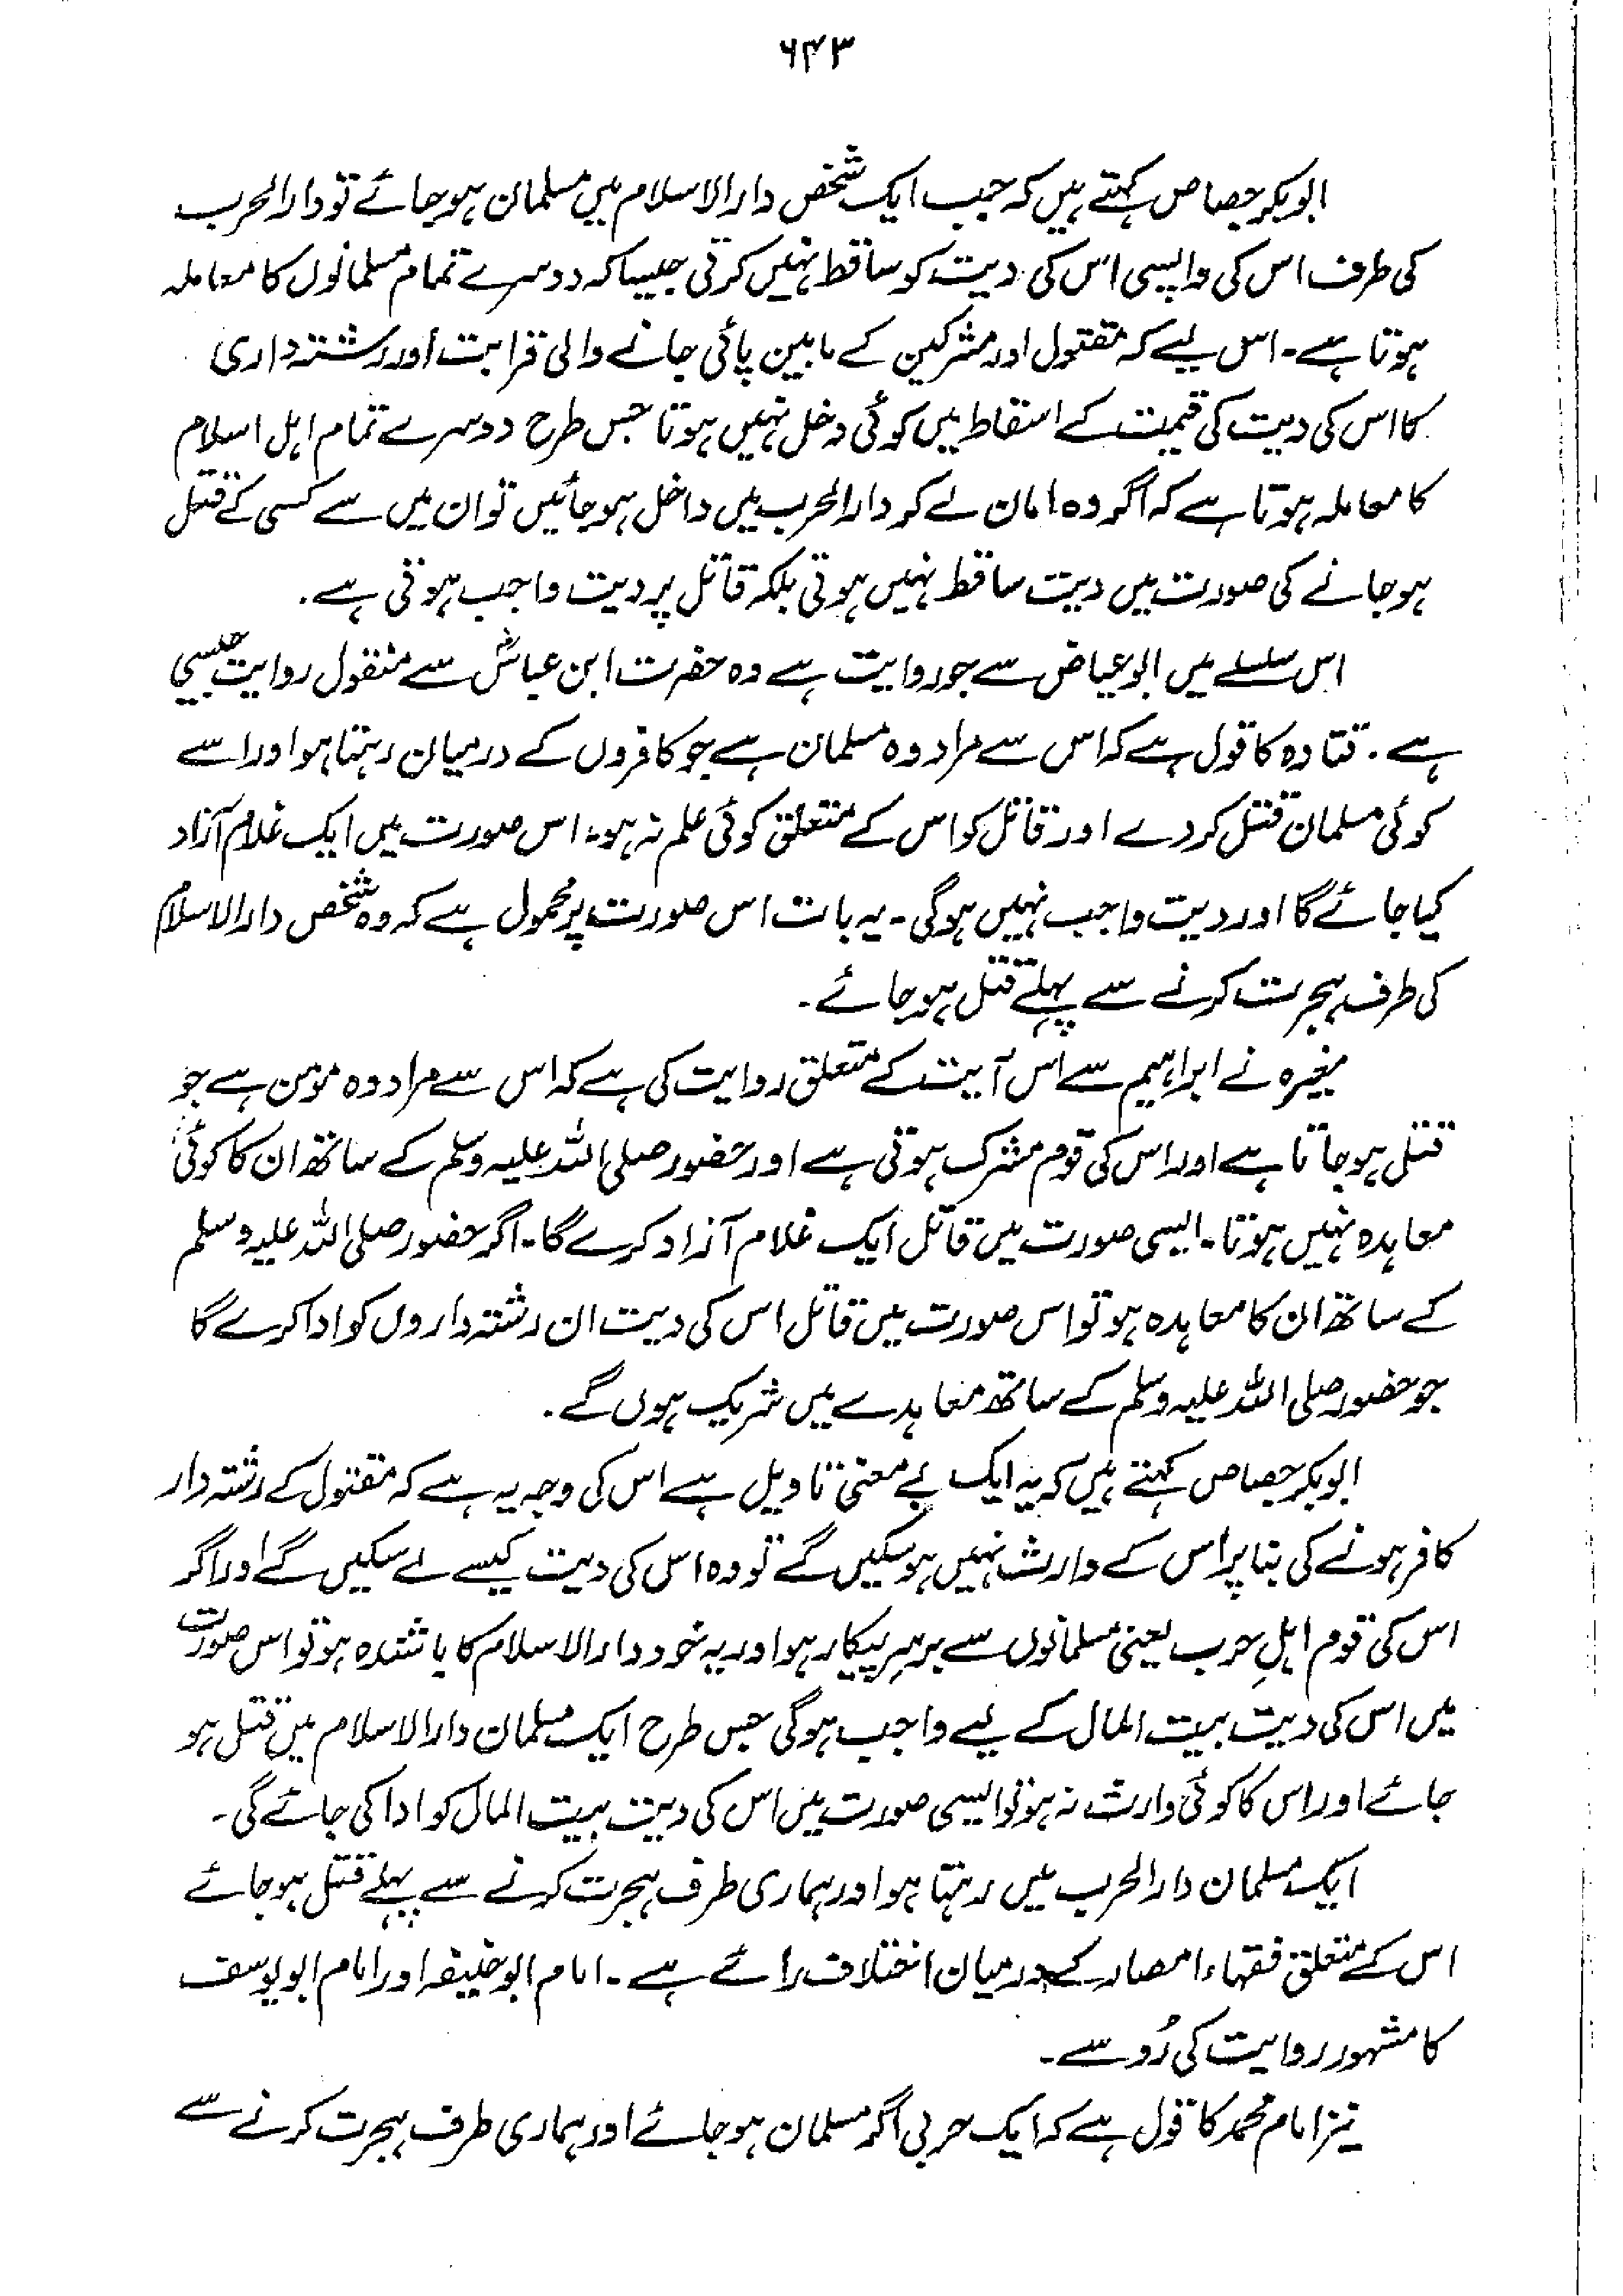 ۶۴۳
ابوبکر جصاص کہتے ہیں کہ جب ایک شخص دارالاسلام میں مسلمان ہو جائے تو دارالحرب
کی طرف اس کی واپسی اس کی دیت کو ساقط نہیں کرتی جیسا کہ دوسرے تمام مسلمانوں کا معاملہ
ہوتا ہے۔ اس لیے کہ مقتول اور مشرکین کے مابین پائی جانے والی قرابت اور رشتہ داری
کا اس کی دیت کی قیمت کے اسقاط میں کوئی دخل نہیں ہوتا جس طرح دوسرے تمام اہل اسلام
کا معاملہ ہوتا ہے کہ اگر وہ امان لے کر دارالحرب میں داخل ہو جائیں تو ان میں سے کسی کے قتل
ہو جانے کی صورت میں دیت ساقط نہیں ہوتی بلکہ قاتل پر دیت واجب ہوتی ہے۔
اس سلسلے میں ابو عیاض سے جو روایت ہے وہ حضرت ابن عباسؓ سے منقول روایت جیسی
ہے۔ قتادہ کا قول ہے کہ اس سے مراد وہ مسلمان ہے جو کافروں کے درمیان رہتا ہو اور اسے
کوئی مسلمان قتل کر دے اور قاتل کو اس کے متعلق کوئی علم نہ ہو۔ اس صورت میں ایک غلام آزاد
کیا جائے گا اور دیت واجب نہیں ہوگی۔ یہ بات اس صورت پر محمول ہے کہ وہ شخص دارالاسلام
کی طرف ہجرت کرنے سے پہلے قتل ہو جائے۔
مغیرہ نے ابراہیم سے اس آیت کے متعلق روایت کی ہے کہ اس سے مراد وہ مؤمن ہے جو
قتل ہو جاتا ہے اور اس کی قوم مشرک ہوتی ہے اور حضور صلی اللہ علیہ وسلم کے ساتھ ان کا کوئی
معاہدہ نہیں ہوتا۔ ایسی صورت میں قاتل ایک غلام آزاد کرے گا۔ اگر حضور صلی اللہ علیہ وسلم
کے ساتھ ان کا معاہدہ ہو تو اس صورت میں قاتل اس کی دیت ان رشتہ داروں کو ادا کرے گا
جو حضور صلی اللہ علیہ وسلم کے ساتھ معاہدے میں شریک ہوں گے۔
ابوبکر جصاص کہتے ہیں کہ یہ ایک بے معنی تاویل ہے اس کی وجہ یہ ہے کہ مقتول کے رشتہ دار
کافر ہونے کی بنا پر اس کے وارث نہیں ہو سکیں گے تو وہ اس کی دیت کیسے لے سکیں گے اور اگر
اس کی قوم اہلِ حرب یعنی مسلمانوں سے برسرِپیکار ہو اور یہ خود دارالاسلام کا باشندہ ہو تو اس صورت
میں اس کی دیت بیت المال کے لیے واجب ہوگی جس طرح ایک مسلمان دارالاسلام میں قتل ہو
جائے اور اس کا کوئی وارث نہ ہو تو ایسی صورت میں اس کی دیت بیت المال کو ادا کی جائے گی۔
ایک مسلمان دارالحرب میں رہتا ہو اور ہماری طرف ہجرت کرنے سے پہلے قتل ہو جائے
اس کے متعلق فقہاء امصار کے درمیان اختلاف رائے ہے۔ امام ابوحنیفہ اور امام ابویوسف
کا مشہور روایت کی رُو سے۔
نیز امام محمد کا قول ہے کہ ایک حربی اگر مسلمان ہو جائے اور ہماری طرف ہجرت کرنے سے